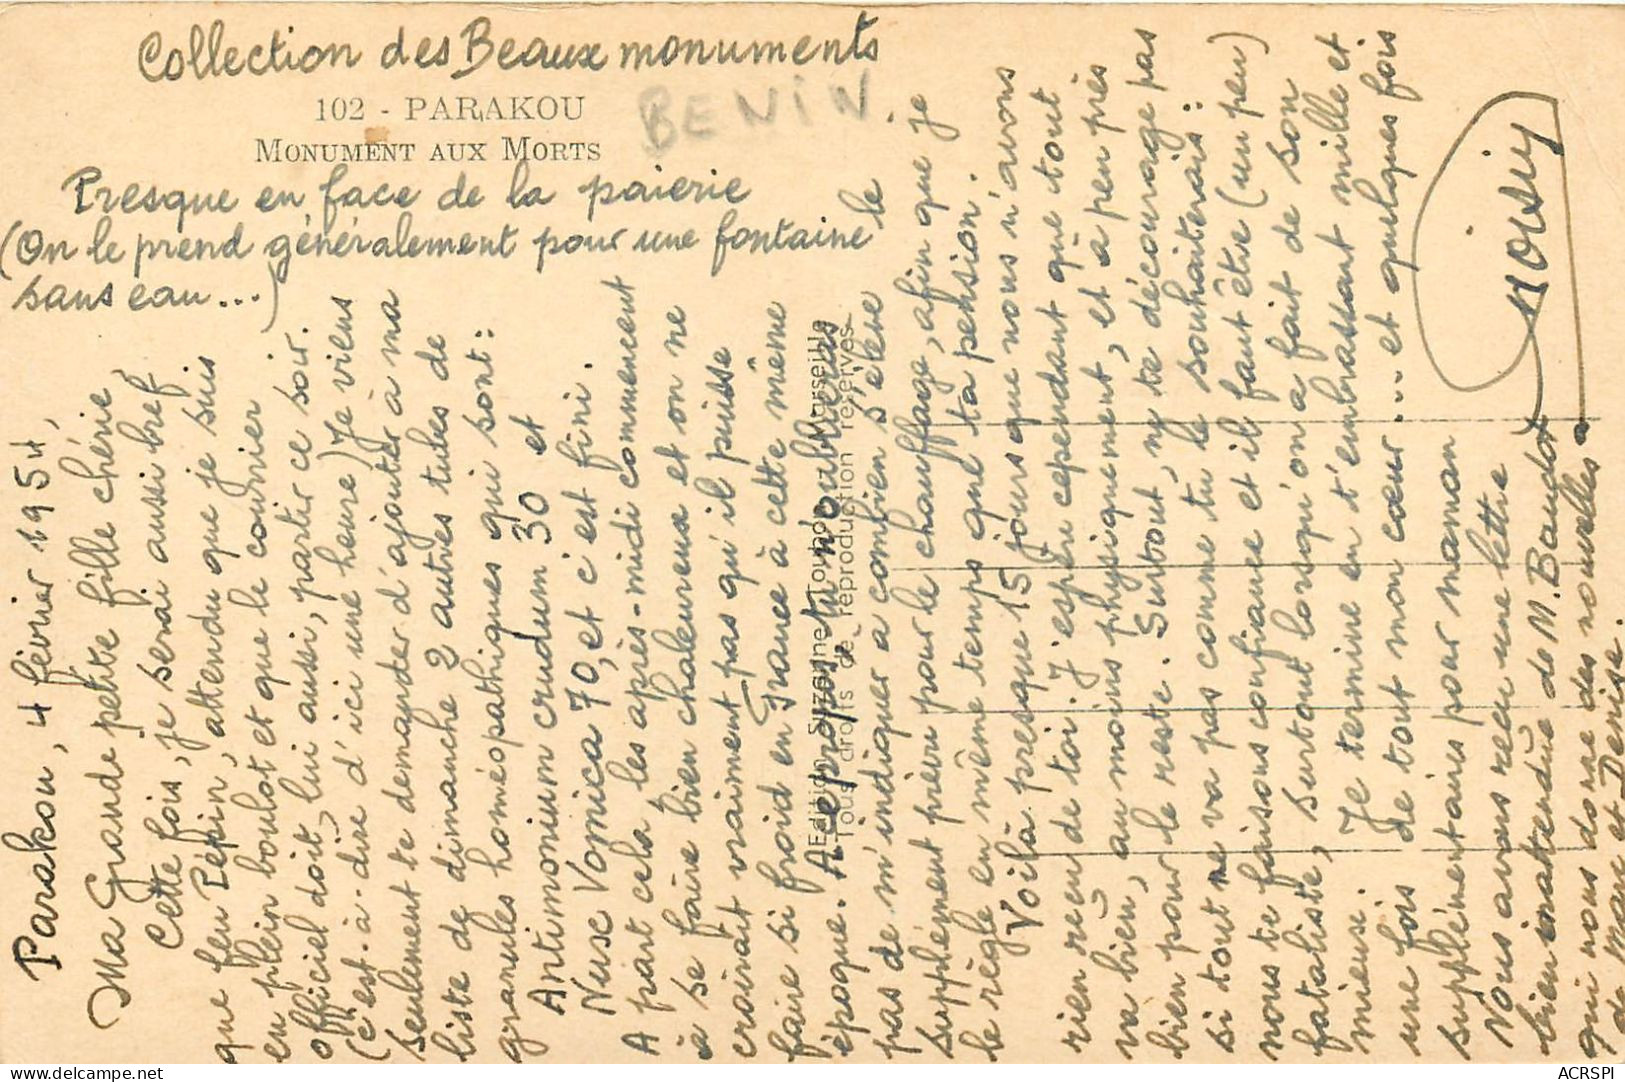 Collection des Beaux monuments
102 - PARAKOU
MONUMENT AUX MORTS
BENIN
Presque en face de la paierie
(On le prend généralement pour une fontaine
sans eau...)
Parakou, 4 février 1954,
Ma Grande petite fille chérie,
Cette fois, je serai aussi bref
que feu Pépin, attendu que je suis
en plein boulot et que le courrier
officiel doit, lui aussi, partir ce soir.
(c'est-à-dire d'ici une heure) Je viens
seulement te demander d'ajouter à ma
liste de dimanche 2 autres tubes de
granules homéopathiques qui sont:
Antimonium crudum 30 et
Nux Vomica 70, et c'est fini.
A part cela les après-midi commencent
à se faire bien chaleureux et on ne
croirait vraiment pas qu'il puisse
faire si froid en France à cette même
époque. A ce propos, tu n'oublieras
pas de m'indiquer à combien s'élève le
supplément prévu pour le chauffage, afin que je
le règle en même temps que ta pension.
Voilà presque 15 jours que nous n'avons
rien reçu de toi. J'espère cependant que tout
va bien, au moins physiquement, et à peu près
bien pour le reste. Surtout, ne te décourage pas
si tout ne va pas comme tu le souhaiterais:
nous te faisons confiance et il faut être (un peu)
fataliste, surtout lorsqu'on a fait de son
mieux. Je termine en t'embrassant mille et
une fois de tout mon cœur... et quelques fois
supplémentaires pour maman
Nous avons reçu une lettre
bien inattendue de M. Baudot
qui nous donne des nouvelles
de Marc et Denise.
Edition Suzanne Tourte Marseille
Tous droits de reproduction réservés
ACRSPI